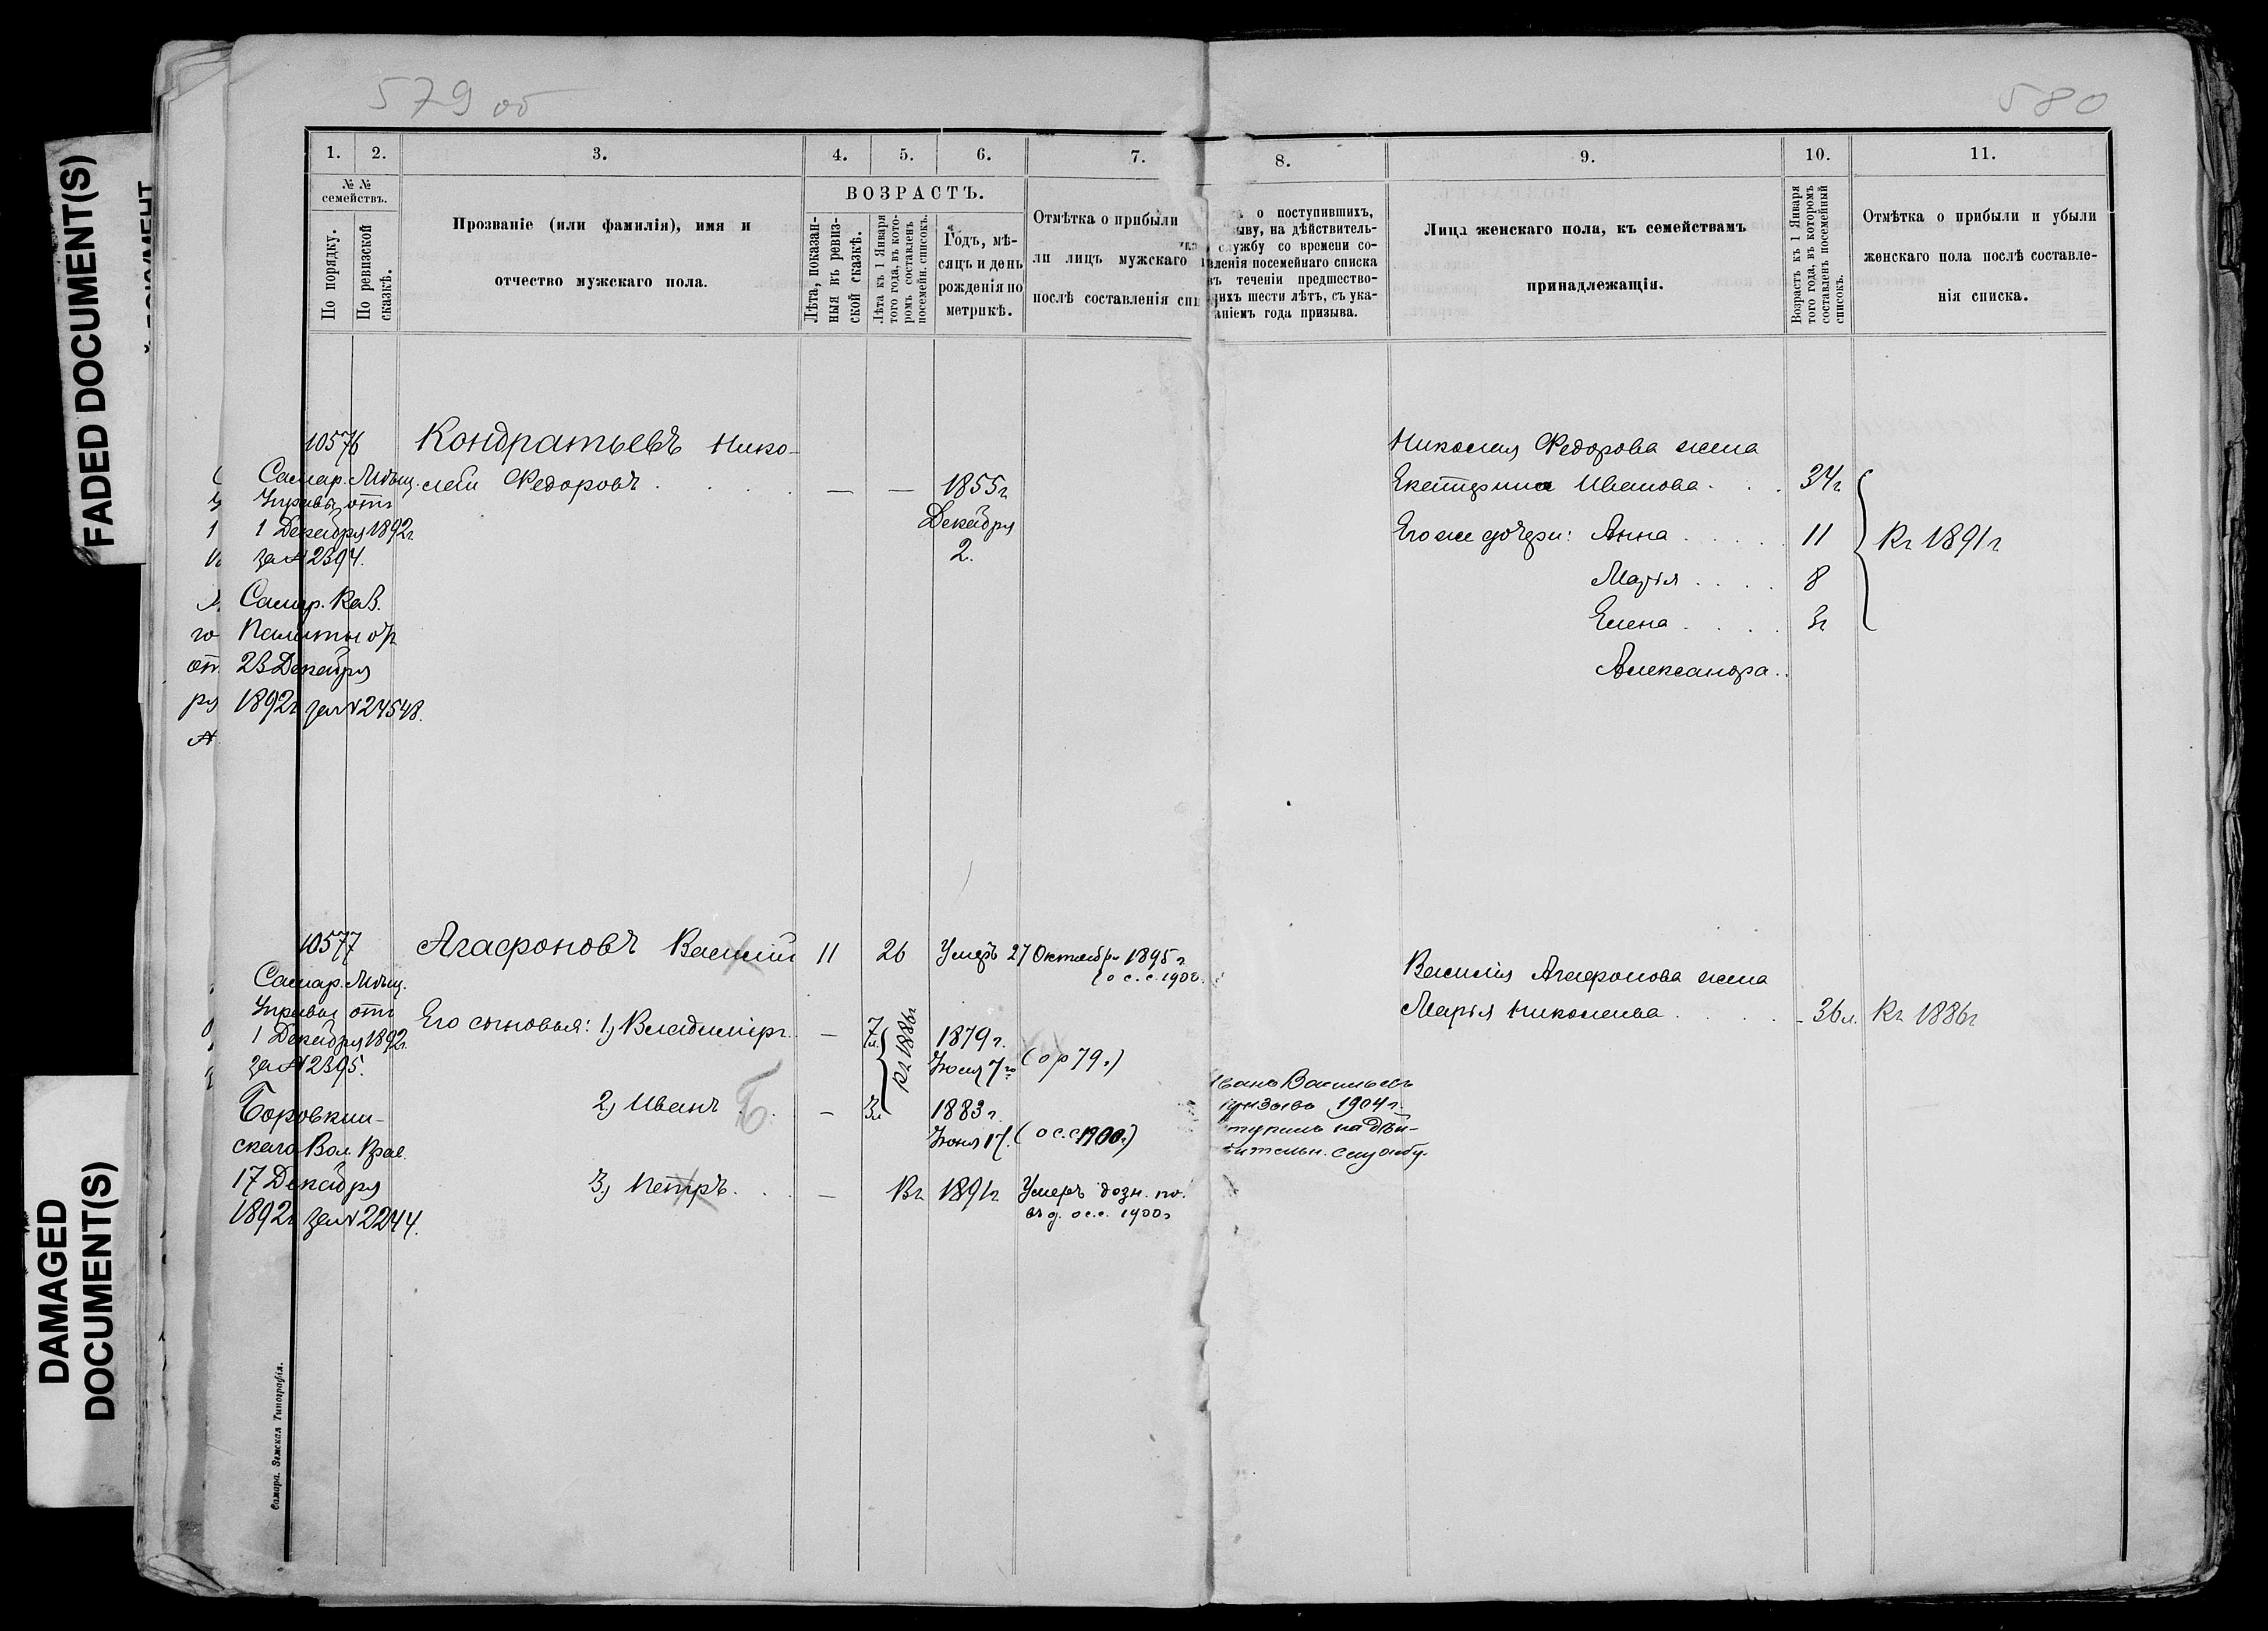 579 об
580
FADED DOCUMENT(S)
DAMAGED
DOCUMENT(S)
1.
2.
3.
4.
5.
6.
7.
8.
9.
10.
11.
№ №
семействъ.
По порядку.
По ревизской
сказкѣ.
Прозваніе (или фамилія), имя и
отчество мужскаго пола.
ВОЗРАСТЪ.
Лѣта, показан-
ныя въ ревиз-
ской сказкѣ.
Лѣта къ 1 Января
того года, въ кото-
ромъ составленъ
посемейн. списокъ.
Годъ, мѣ-
сяцъ и день
рожденія по
метрикѣ.
Отмѣтка о прибыли
ли лицъ мужскаго
послѣ составленія спи
о поступившихъ,
ыву, на дѣйствитель-
службу со времени со-
вленія посемейнаго списка
въ теченіи предшество-
щихъ шести лѣтъ, съ ука-
аніемъ года призыва.
Лица женскаго пола, къ семействамъ
принадлежащія.
Возрастъ къ 1 Января
того года, въ которомъ
составленъ посемейный
списокъ.
Отмѣтка о прибыли и убыли
женскаго пола послѣ составле-
нія списка.
10576
Самар. Мѣщ.
Управы отъ
1 Декабря 1892г.
за № 2394.
Самар. Каз.
Палаты отъ
23 Декабря
1892г за № 24548.
Кондратьевъ Нико-
лай Федоровъ . . . . — — 1855г
Декабря
2.
Николая Федорова жена
Екатерина Иванова . . . 34г
Его же дочери: Анна . . . . . 11
Марія . . . . 8
Елена . . . . 3г
Александра . .
Къ 1891г
10577
Самар. Мѣщ.
Управы отъ
1 Декабря 1892г.
за № 2395.
Боровкин-
скаго Вол. Прав.
17 Декабря
1892г за № 2244.
Агафоновъ Василій 11 26 Умеръ 27 Октября 1895 г.
(о с. с. 1900.
Его сыновья: 1) Владиміръ . — 7л. 1879 г.
Іюля 7го (о р 79.)
къ 1886г
2) Иванъ . Б . — 3л 1883 г.
Іюня 17. (о с. с 1900.)
3) Петръ . . — Въ 1891г. Умеръ дозн. по.
о с. с. 1900г
ванъ Васильевъ
призыва 1904 г.
тупилъ на дѣй-
вительн. службу.
Василія Агафонова жена
Марія Николаева . . . . . 36л. Къ 1886г
Самара. Земская Типографія.